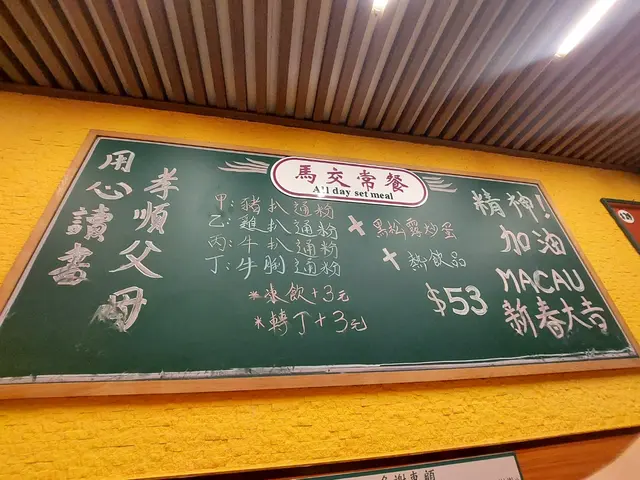 用心讀書
孝順父母
馬交常餐
All day set meal
甲:豬扒通粉
乙:雞扒通粉
丙:牛扒通粉
丁:牛脷通粉
*凍飲+3元
*轉丁+3元
+ 黑松露炒蛋
+ 熱飲品
$53
精神!
加油
MACAU
新春大吉